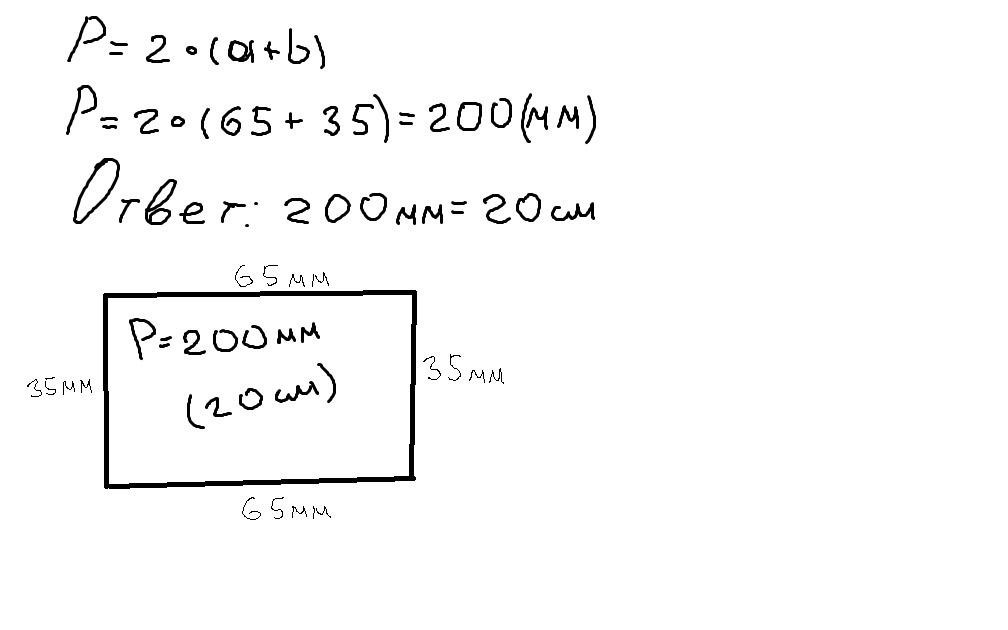 P = 2 • (a+b)
P = 2 • (65 + 35) = 200(мм)
Ответ: 200мм = 20см
65мм
P = 200мм
35мм
35мм
(20см)
65мм